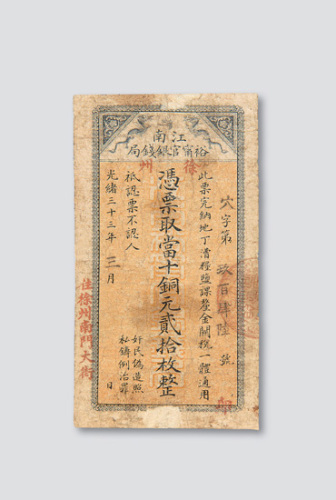 江南
裕甯官銀錢局
徐州
穴字第玖百肆陸號
此票完納地丁漕糧鹽課釐金關稅一體通用
憑票取當十銅元貳拾枚整
祇認票不認人
奸民偽造照
私鑄例治罪
光緒三十三年三月 日
住徐州南門大街